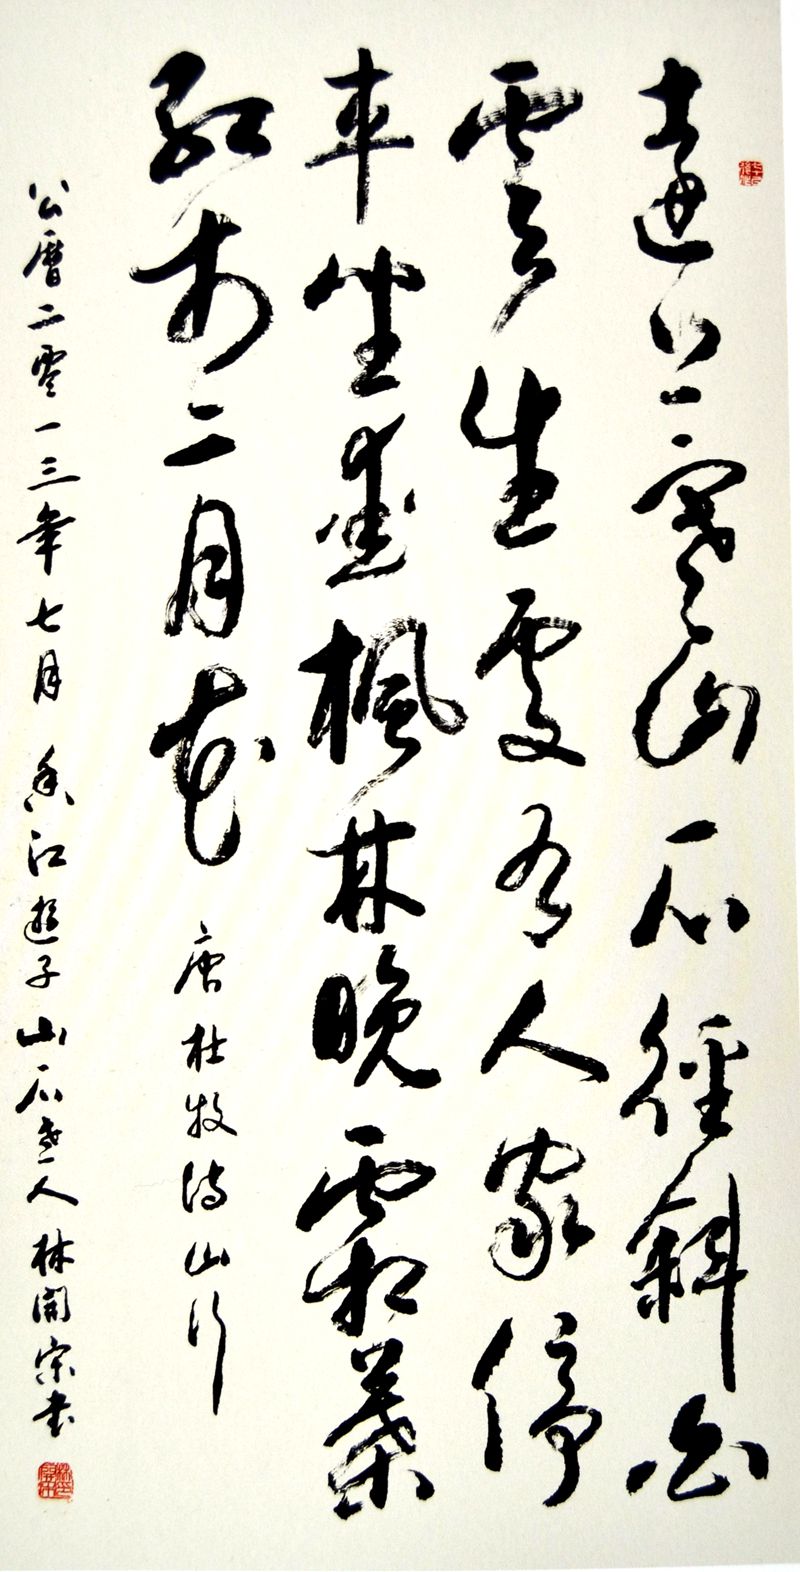 遠上寒山石徑斜白
雲生處有人家停
車坐愛楓林晚霜葉
紅於二月花 唐杜牧詩山行
公曆二零一三年七月 香江遊子山石老人林開宗書